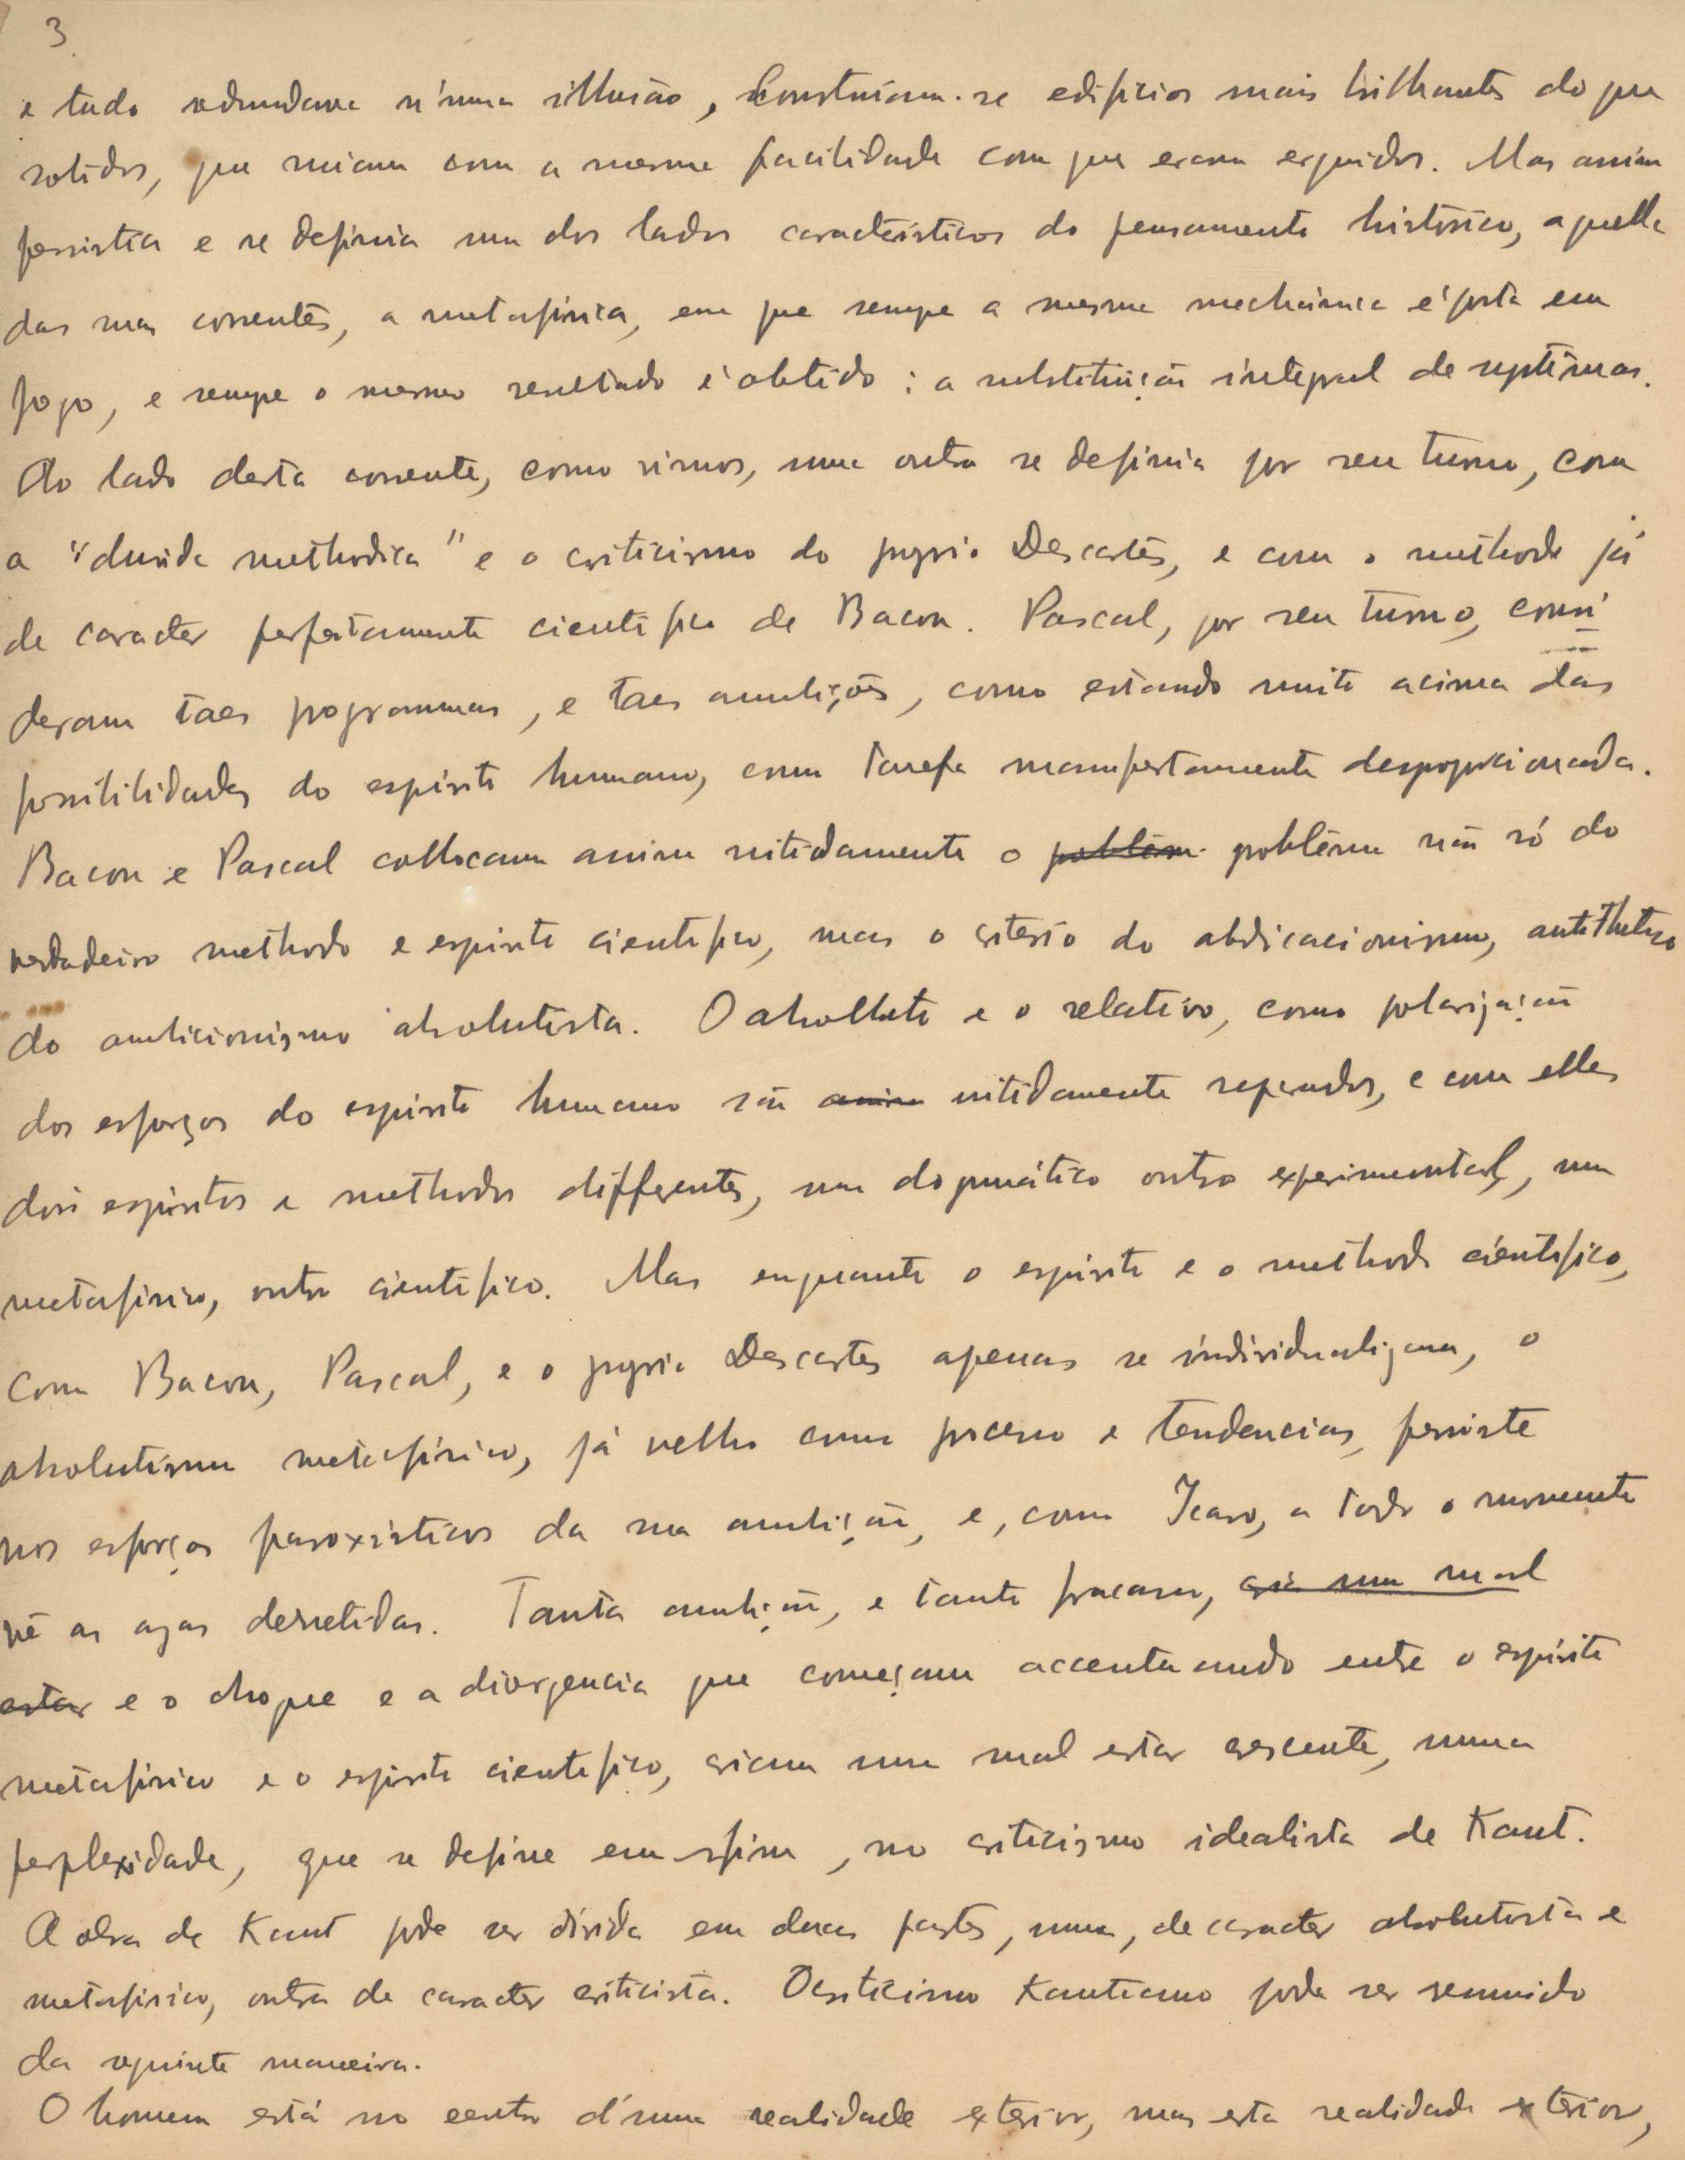 3
e tudo redundava n'uma illusão, construiam-se edificios mais brilhantes do que
solidos, que ruiam com a mesma facilidade com que eram erguidos. Mas assim
persistia e se definia um dos lados caracteristicos do pensamento historico, aquella
das suas correntes, a metafisica, em que sempre a mesma mechanica é posta em
jogo, e sempre o mesmo resultado é obtido: a substituição integral de systêmas.
Ao lado desta corrente, como vimos, uma outra se definia por seu turno, com
a "duvida methodica" e o criticismo do proprio Descartes, e com o methodo já
de caracter perfeitamente cientifico de Bacon. Pascal, por seu turno, consi
deram taes programmas, e taes ambições, como estando muito acima das
possibilidades do espirito humano, como tarefa manifestamente desproporcionada.
Bacon e Pascal collocam assim nitidamente o problêm problêma não só do
verdadeiro methodo e espirito cientifico, mas o criterio do abdicacionismo, antithetico
do ambicionismo absolutista. O absolluto e o relativo, como polarização
dos esforços do espirito humano são assim nitidamente separados, e com elles
dois espiritos e methodos differentes, um dogmático outro experimental, um
metafisico, outro cientifico. Mas enquanto o espirito e o methodo cientifico,
com Bacon, Pascal, e o proprio Descartes apenas se individualizam, o
absolutismo metafisico, já velho como processo e tendencias, persiste
nos esforços paroxisticos da sua ambição, e, como Icaro, a todo o momento
vê as azas derretidas. Tanta ambição, e tanto fracasso, cria um mal
estar e o choque e a divergencia que começam accentuando entre o espirito
metafisico e o espirito cientifico, criam um mal estar crescente, numa
perplexidade, que se define em fim, no criticismo idealista de Kant.
A obra de Kant pode ser divida em duas partes, uma, de caracter absolutista e
metafisico, outra de caracter criticista. O criticismo Kantiano pode ser resumido
da seguinte maneira.
O homem está no centro d'uma realidade exterior, mas esta realidade exterior,